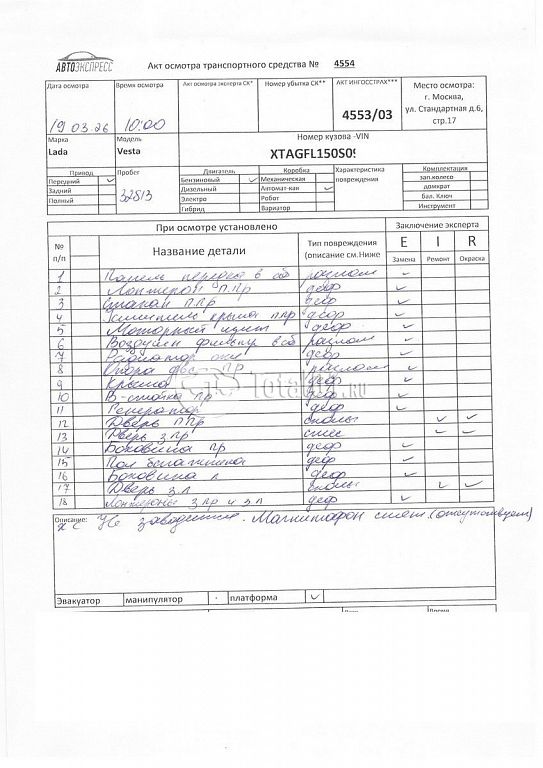 АВТОЭКСПРЕСС
Акт осмотра транспортного средства № 4554
Дата осмотра Время осмотра Акт осмотра эксперта СК* Номер убытка СК** АКТ ИНГОССТРАХ*** Место осмотра:
г. Москва,
ул. Стандартная д.6,
стр.17
19 03.26 10:00 4553/03
Марка Модель Номер кузова -VIN
Lada Vesta XTAGFL150S0
Привод Пробег Двигатель Коробка Характеристика повреждения Комплектация
Передний ✓ Бензиновый ✓ Механическая зап.колесо
Задний 32813 Дизельный Автомат-кая ✓ домкрат
Полный Электро Робот бал. Ключ
Гибрид Вариатор Инструмент
При осмотре установлено Заключение эксперта
№ п/п Название детали Тип повреждения (описание см.Ниже E I R
Замена Ремонт Окраска
1 Панель передка в сб разлом ✓
2 Лонжерон ППр деф ✓
3 Стакан ППр деф ✓
4 Усилитель крыла ППр деф ✓
5 Моторный щит деф ✓
6 Воздушн фильтр в сб разлом ✓
7 Радиатор деф ✓
8 Опора двс Пр разлом ✓
9 Крыша деф ✓
10 В-стойка Пр деф ✓
11 Генератор деф ✓
12 Дверь ППр сколы ✓ ✓
13 Дверь ЗПр ✓ ✓
14 Боковина Пр деф ✓
15 Пол багажника деф ✓
16 Боковина Л деф ✓
17 Дверь З.Л сколы ✓ ✓
18 Лонжероны З.Пр и З.Л деф ✓
Описание: Не заводится. Магнитофон снят. (отсутствует)
TotalCar.RU
Эвакуатор манипулятор платформа ✓